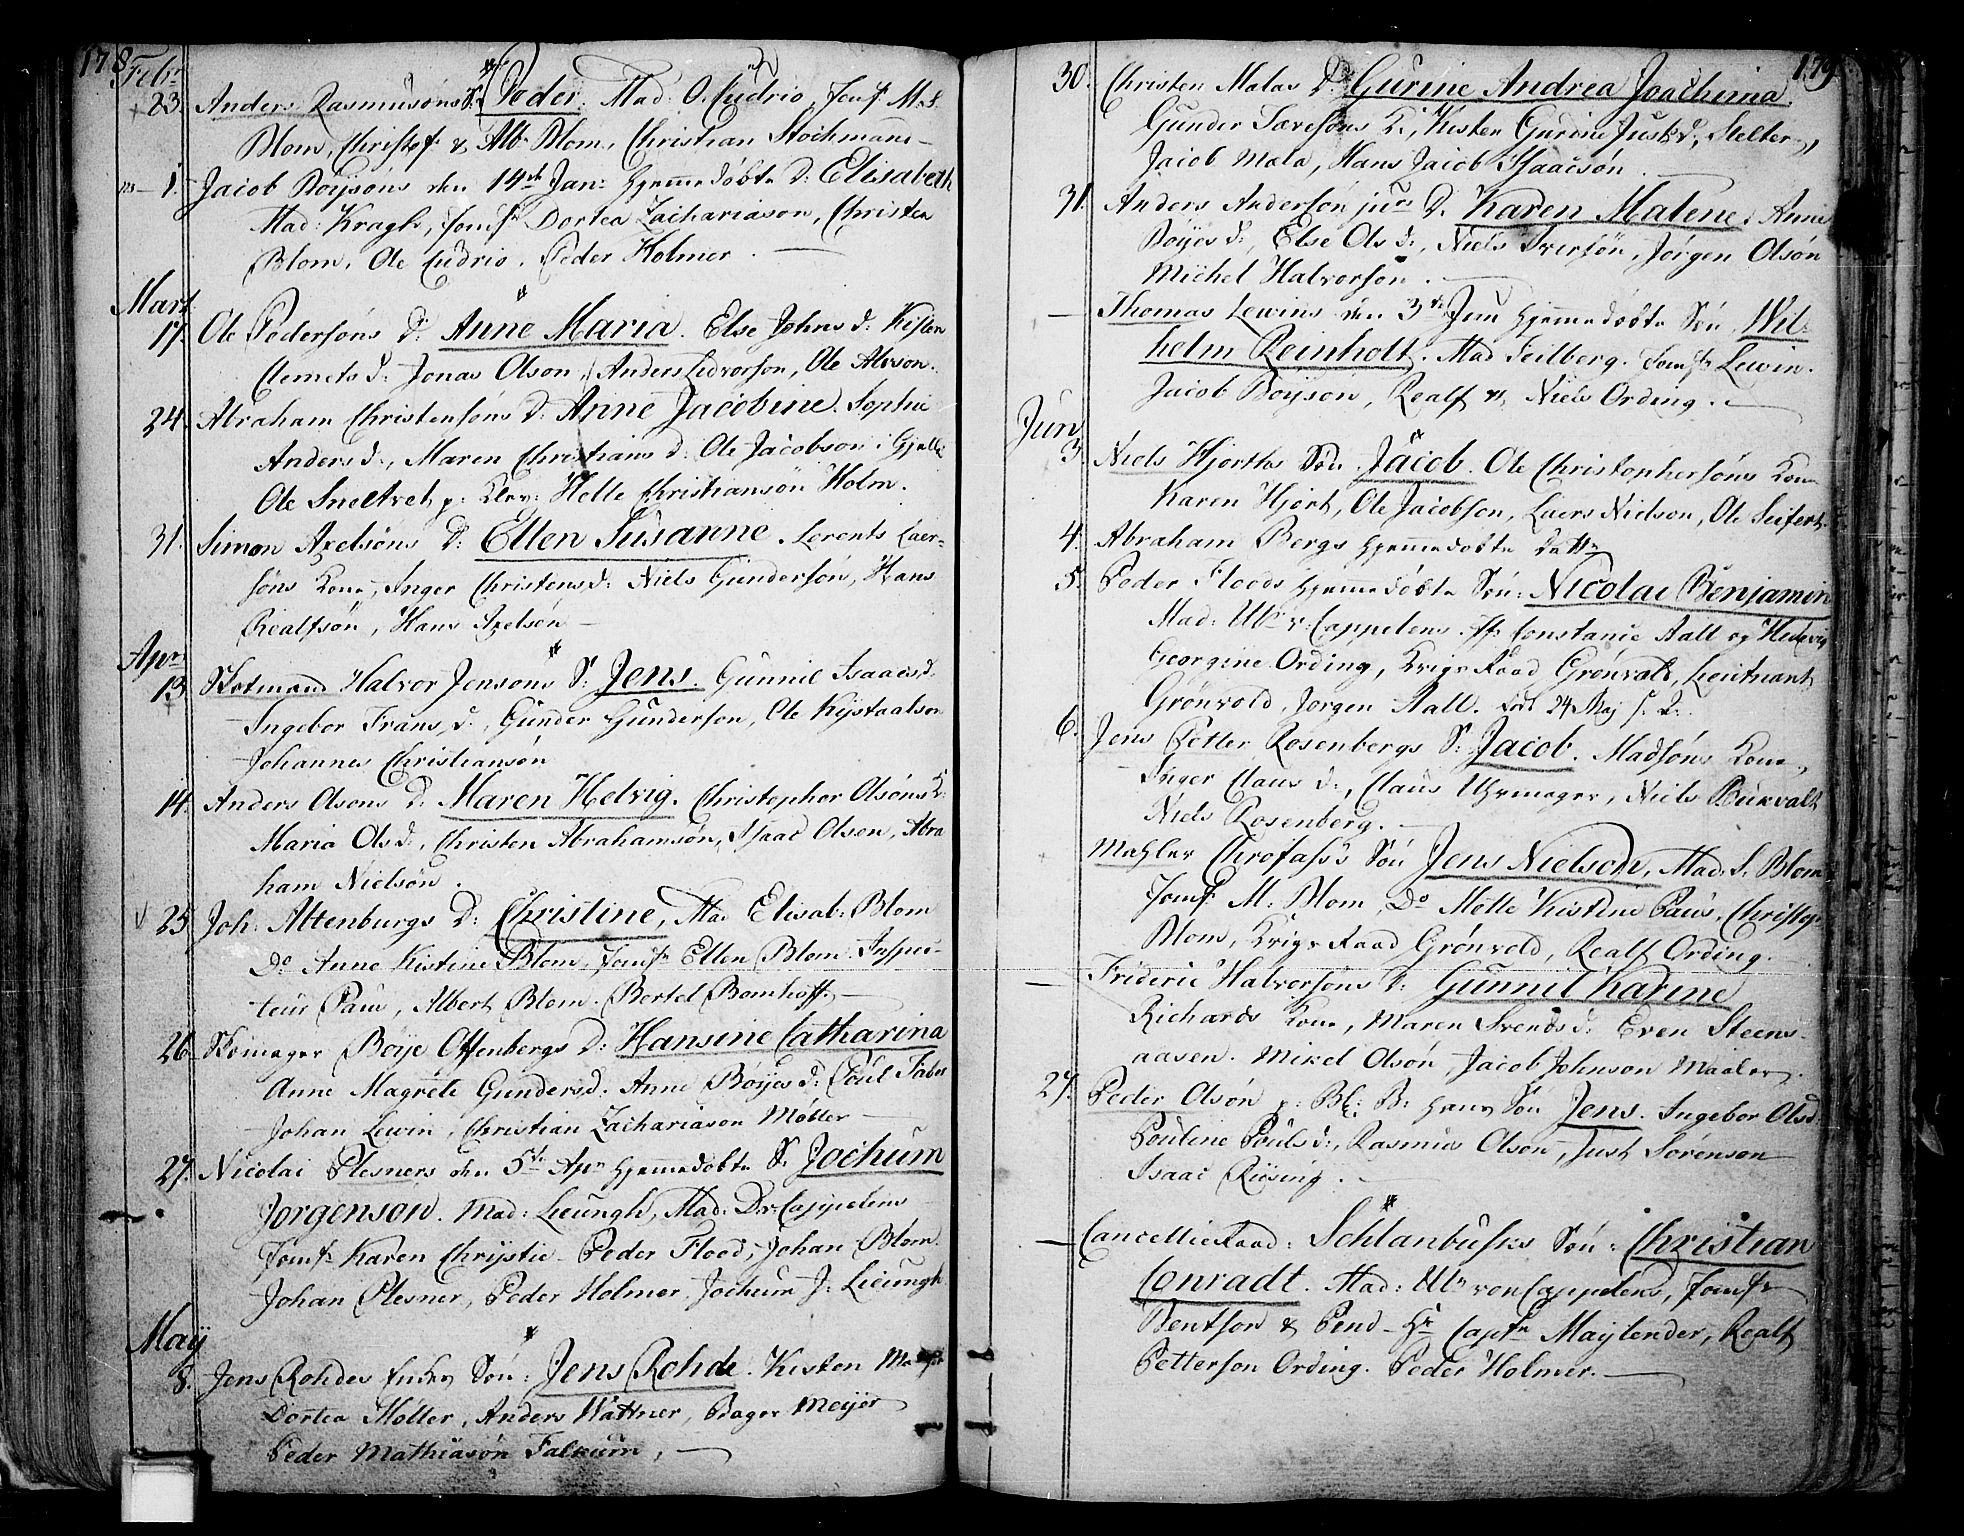 178
Febr
23. Anders Rasmusøns S. Peder. Mad: O. Cudrio, Jomf. M. S.
Blom, Christof & Alb. Blom, Christian Stochmann
1. Jacob Boysøns den 14de Jan: hjemmedøbte D: Elisabeth
Mad: Kragh, Jomfr Dortea Zachariason, Christen
Blom, Ole Cudrio, Peder Holmer.
Mart
17. Ole Pedersøns D: Anne Maria. Else Johnsd: Kisten
Clemetsd: Jonas Olson, Anders Ledvorsøn, Ole Alvson.
24. Abraham Christensøns D: Anne Jacobine. Sophie
Andersd., Maren Christiansd: Ole Jacobson i
Ole Sneltvet p: Klev: Helle Christiansøn Holm.
31. Simon Axelsøns D: Ellen Susanne. Lorents Laer-
søns Kone, Inger Christensd: Niels Gundersøn, Hans
Realfsøn, Hans Axelsøn
Apr
13. Halvor Jensøns S: Jens. Gunnil Isaacsd.
Ingebor Fransd., Gunder Gundersøn, Ole Kystaalson
Johannes Christiansøn
14. Anders Olsons D: Maren Helvig. Christopher Olsøns K:
Maria Olsd., Christen Abrahamsøn, Isaac Olsen, Abra
ham Nielsøn.
25. Joh: Altenburgs D: Christine, Mad Elisab: Blom
Do Anne Kistine Blom, Jomfr Ellen Blom. Inspec-
teur Paus, Albert Blom. Bertel Bomhoff.
26. Skomager Boye Offenbergs D: Hansine Catharina
Anne Magrete Gundersd. Anne Boyesd: Poul Faber
Johan Lewin, Christian Zachariason Møller
27. Nicolai Plesners den 5te Apr hjemmedøbte S. Jochum
Jørgensøn. Mad: Lieungh, Mad: D. v: Cappelens
Jomfr Karen Chrystie. Peder Flood, Johan Blom.
Johan Plesner, Peder Holmer, Jochum J: Lieungh
May
8. Jens Rohdes Søn: Jens Rohde. Kisten
Dortea Møller, Anders Wattner, Bager Meyer
Peder Mathiasøn Falkum,
179
30. Christen Malas D: Gurine Andrea Joachima.
Gunder Tareføns K:, Kisten Gurine Justsd.,
Jacob Mala, Hans Jacob Isaacsøn
31. Anders Andersøn jun: D. Karen Malene. Anne
Boyesd:, Else Olsd:, Niels Iversøn, Jørgen Olsøn
Michel Halvorsøn.
Thomas Lewins den 3de Jun hjemmedøbte Søn Wil-
helm Reinholt. Mad Feilberg. Jomfr Lewin.
Jacob Boyson, Realf & Niels Ording.
Jun
3. Niels Hjorths Søn Jacob. Ole Christophersøns Kone
Karen Hjort, Ole Jacobson, Laers Nielson, Ole Seifert.
4. Abraham Bergs hjemmedøbte datter
5. Peder Floods hjemmedøbte Søn: Nicolai Benjamin
Mad: Ulr v: Cappelens. Jfr Constance Aall og Hedevig
Georgine Ording, Krigs Raad Grønvold, Lieutnant
Grønvold, Jorgen Aall. fød 24 Maj
6. Jens Petter Rosenbergs S: Jacob. Madsøns Kone,
Inger Clausd:, Claus Uhrmager, Niels Bukvalt
Niels Rosenberg.
Mahler Søn Jens Nielson, Mad. S. Blom
Jomfr M. Blom, Do Mette Kistine Paus, Christoph
Blom, Krigs Raad Grønvold, Realf Ording.
Frideric Halvorsøns D: Gunnil Karine
Richards Kone, Maren Svendsd: Even Steens-
aasen. Mikel Olsøn, Jacob Johnson Maaler.
27. Peder Olsøn p: Bl: B: hans Søn Jens. Ingebor Olsd
Pouline Poulsd:, Rasmus Olson, Just Sørensøn
Isaac Riising.
CancellieRaad: Schlanbusks Søn: Christian
Conradt. Mad: Ulr von Cappelens, Jomfr
Bentson & Pend Hr Captn Maylender, Realf
Petterson Ording. Peder Holmer.